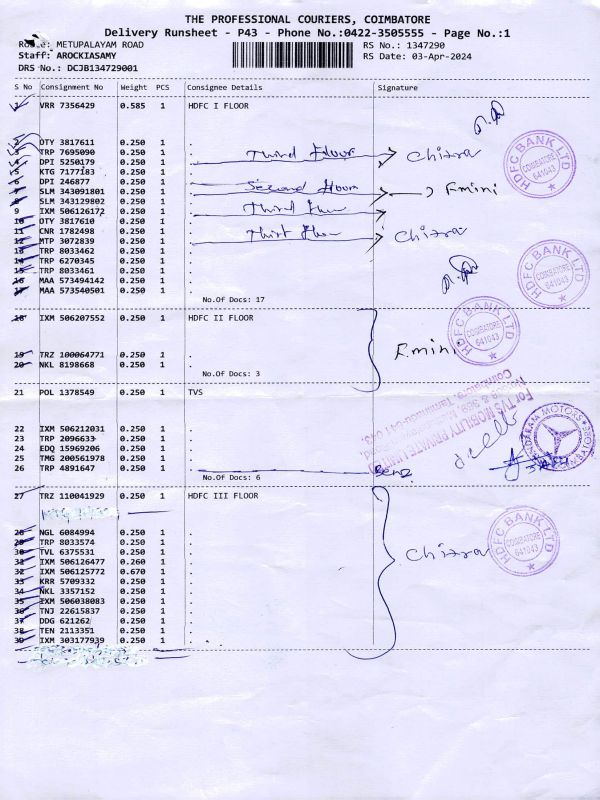 THE PROFESSIONAL COURIERS, COIMBATORE
Delivery Runsheet - P43 - Phone No.:0422-3505555 - Page No.:1
METUPALAYAM ROAD RS No.: 1347290
Staff: AROCKIASAMY RS Date: 03-Apr-2024
DRS No.: DCJB134729001
S No Consignment No Weight PCS Consignee Details Signature
1 VRR 7356429 0.585 1 HDFC I FLOOR
2 OTY 3817611 0.250 1 .
3 TRP 7695090 0.250 1 . Third Floor Chitra
4 DPI 5250179 0.250 1 .
5 KTG 7177183 0.250 1 .
6 DPI 246877 0.250 1 .
7 SLM 343091801 0.250 1 . Second Floor F.mini
8 SLM 343129802 0.250 1 .
9 IXM 506126172 0.250 1 . Third Floor
10 OTY 3817610 0.250 1 .
11 CNR 1782498 0.250 1 . Third Floor Chitra
12 MTP 3072839 0.250 1 .
13 TRP 8033462 0.250 1 .
14 TRP 6270345 0.250 1 .
15 TRP 8033461 0.250 1 .
16 MAA 573494142 0.250 1 .
17 MAA 573540501 0.250 1 .
No.Of Docs: 17
HDFC BANK LTD
COIMBATORE
641043
HDFC BANK LTD
COIMBATORE
641043
18 IXM 506207552 0.250 1 HDFC II FLOOR
19 TRZ 100064771 0.250 1 .
20 NKL 8198668 0.250 1 .
No.Of Docs: 3
F.mini
HDFC BANK LTD
COIMBATORE
641043
21 POL 1378549 0.250 1 TVS
22 IXM 506212031 0.250 1 .
23 TRP 2096633 0.250 1 .
24 EDQ 15969206 0.250 1 .
25 TMG 200561978 0.250 1 .
26 TRP 4891647 0.250 1 . Benz
No.Of Docs: 6
For TVS MOBILITY PRIVATE LIMITED
MOTORS
27 TRZ 110041929 0.250 1 HDFC III FLOOR
28 NGL 6084994 0.250 1 .
29 TRP 8033574 0.250 1 .
30 TVL 6375531 0.250 1 .
31 IXM 506126477 0.260 1 .
32 IXM 506125772 0.670 1 .
33 KRR 5709332 0.250 1 .
34 NKL 3357152 0.250 1 .
35 IXM 506038083 0.250 1 .
36 TNJ 22615837 0.250 1 .
37 DDG 621262 0.250 1 .
38 TEN 2113351 0.250 1 .
39 IXM 303177939 0.250 1 .
Chitra
HDFC BANK LTD
COIMBATORE
641043